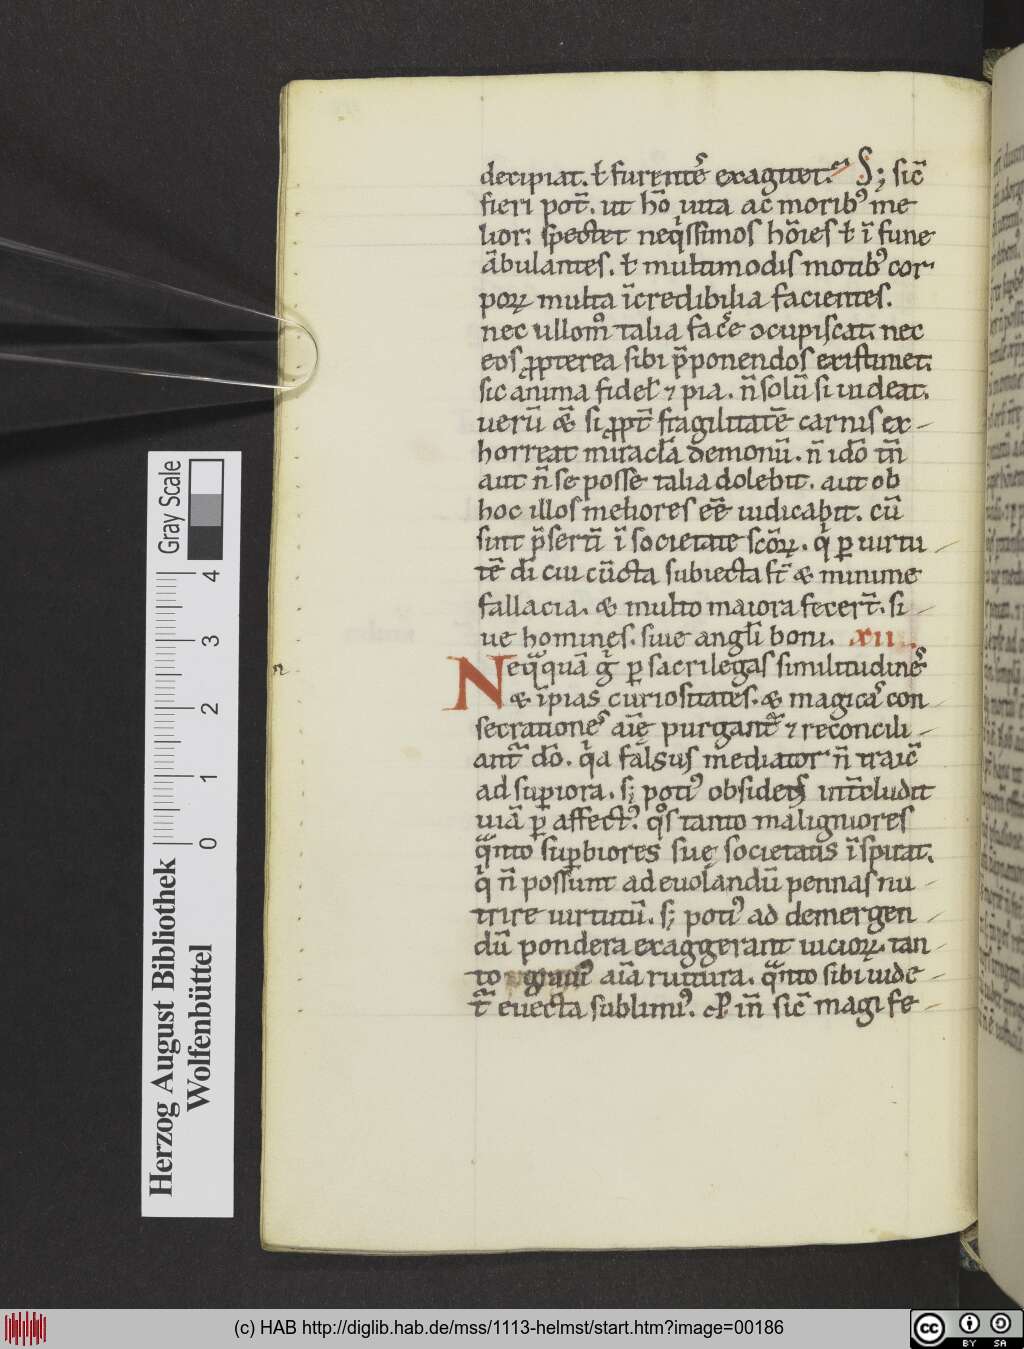 decipiat. ł furentē exagitet. S; sic̄
fieri pot̄. ut hō uita ac morib᷒ me
lior. spectet neq̇ssimos hōies ł ī fune
ābulantes. ł multimodis motib᷒ cor
porꝝ multa īcredibilia facientes.
nec ullom̊ talia facē ↄcupiscat. nec
eos ꝓpterea sibi p̄ponendos existimet.
sic anima fidel̄ ⁊ pia. n̄ solū si uideat.
uerū & si ꝓpt̄ fragilitatē carnis ex
horreat miracl̄a demonū. n̄ idō tn̄
aut n̄ se posse talia dolebit. aut ob
hoc illos meliores eē iudicabit. cū
sint p̄sertī ī societate scōꝝ. q̇ ꝑ uirtu
tē dī cui cūcta subiecta st̄ & minime
fallacia. & multo maiora fecer̄t. si
ue homines. siue angl̄i boni. xii
Neqᷓquā g̊ ꝑ sacrilegas similitudinēs
& īpias curiositates. & magicas con
secrationes aīę purgantᷓ ⁊ reconcili
antᷓ dō. q̇a falsus mediator n̄ traic̄
ad suꝑiora. s; poti᷒ obsidens int̄cludit
uiā ꝑ affect᷒. q̊s tanto maligniores
qᷓnto suꝑbiores suę societatis īspirat.
q̇ n̄ possunt ad euolandū pennas nu
trire uirtutū. s; poti᷒ ad demergen
dū pondera exaggerant uicioꝝ. tan
to graui᷒ aīa ruitura. qᷓnto sibi uide
tᷓ euecta sublimi᷒. in̄ sic̄ magi fe
n
Herzog August Bibliothek
Wolfenbüttel
Gray Scale
0 1 2 3 4
(c) HAB http://diglib.hab.de/mss/1113-helmst/start.htm?image=00186
cc BY SA